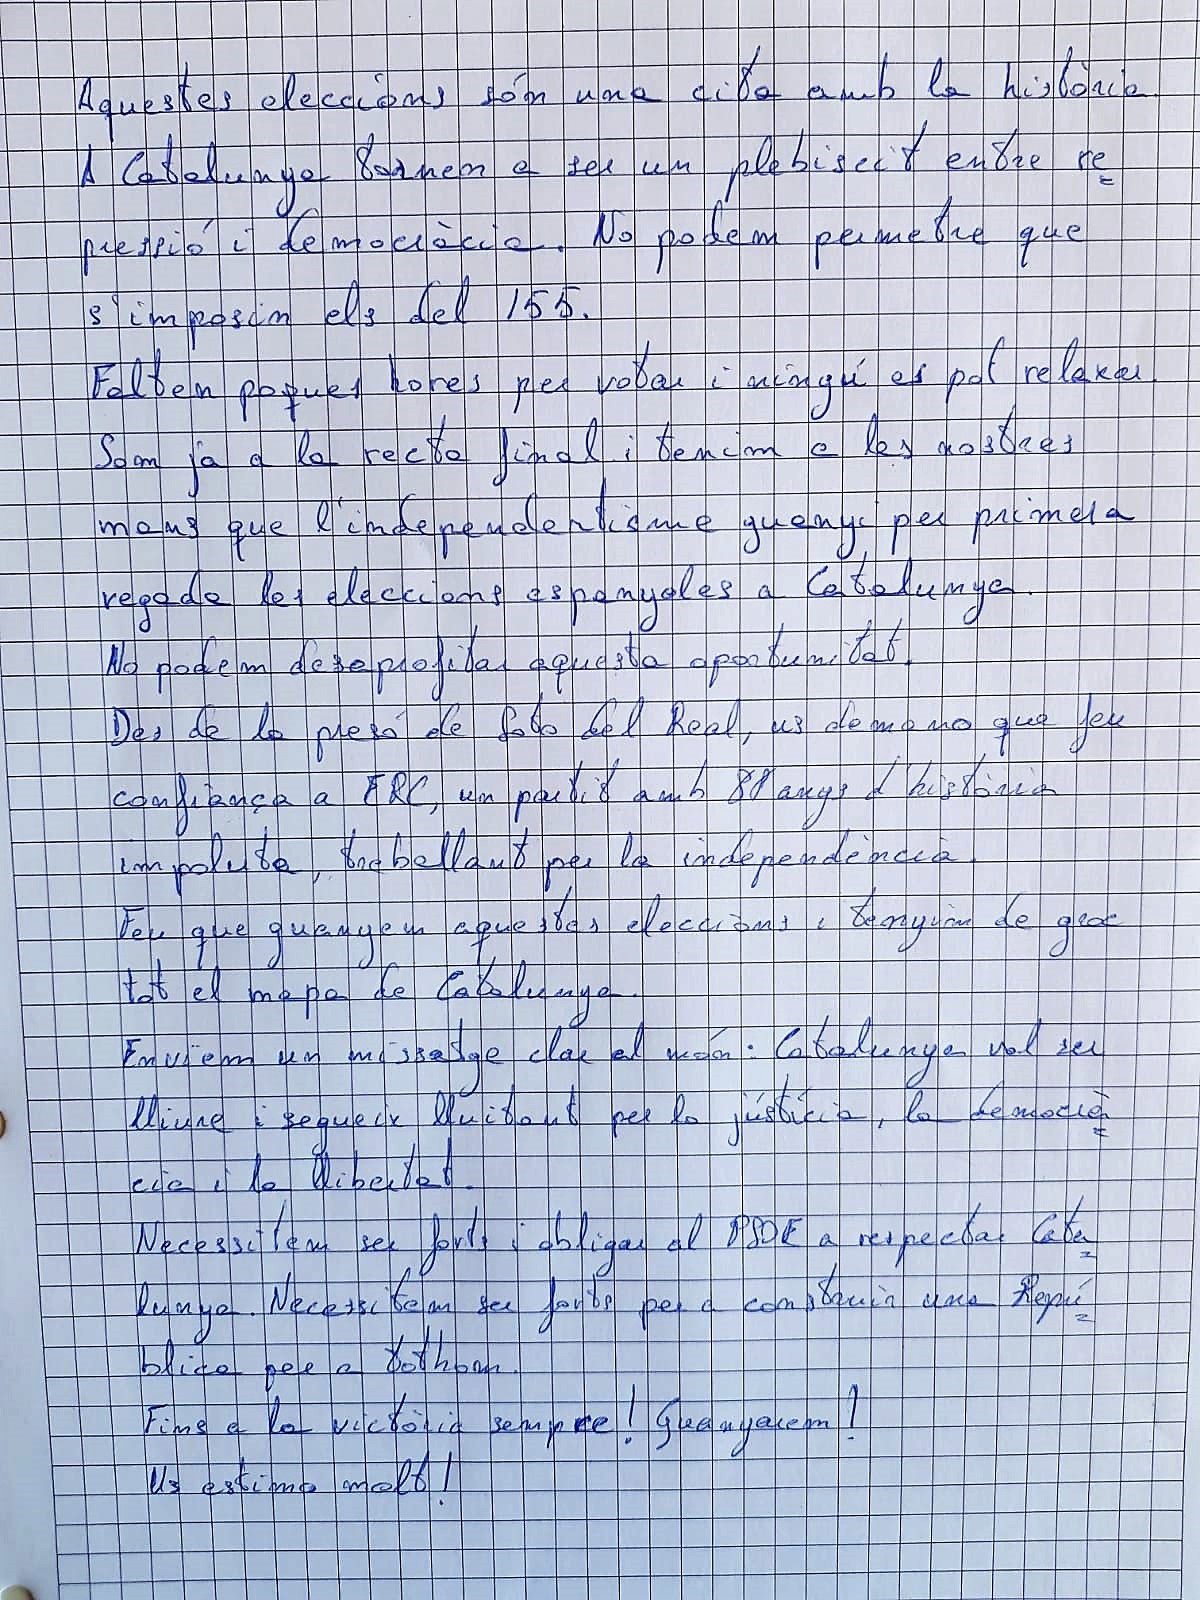 Aquestes eleccions són una cita amb la història.
A Catalunya tornem a ser un plebiscit entre re
pressió i democràcia. No podem permetre que
s'imposin els del 155.
Falten poques hores per votar i ningú es pot relaxar.
Som ja a la recta final i tenim a les nostres
mans que l'independentisme guanyi per primera
vegada les eleccions espanyoles a Catalunya.
No podem desaprofitar aquesta oportunitat.
Des de la presó de Soto del Real, us demano que feu
confiança a ERC, un partit amb 88 anys d'història
impoluta, treballant per la independència.
Feu que guanyem aquestes eleccions i tenyim de groc
tot el mapa de Catalunya.
Enviem un missatge clar al món: Catalunya vol ser
lliure i segueix lluitant per la jústícia, la democrà
cia i la llibertat.
Necessitem ser forts i obligar al PSOE a respectar Cata
lunya. Necessitem ser forts per a construir una Repú
blica per a tothom.
Fins a la victòria sempre! Guanyarem!
Us estimo molt!